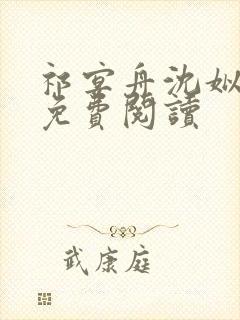 祁宴舟沈姒
免費閱讀
武康庭